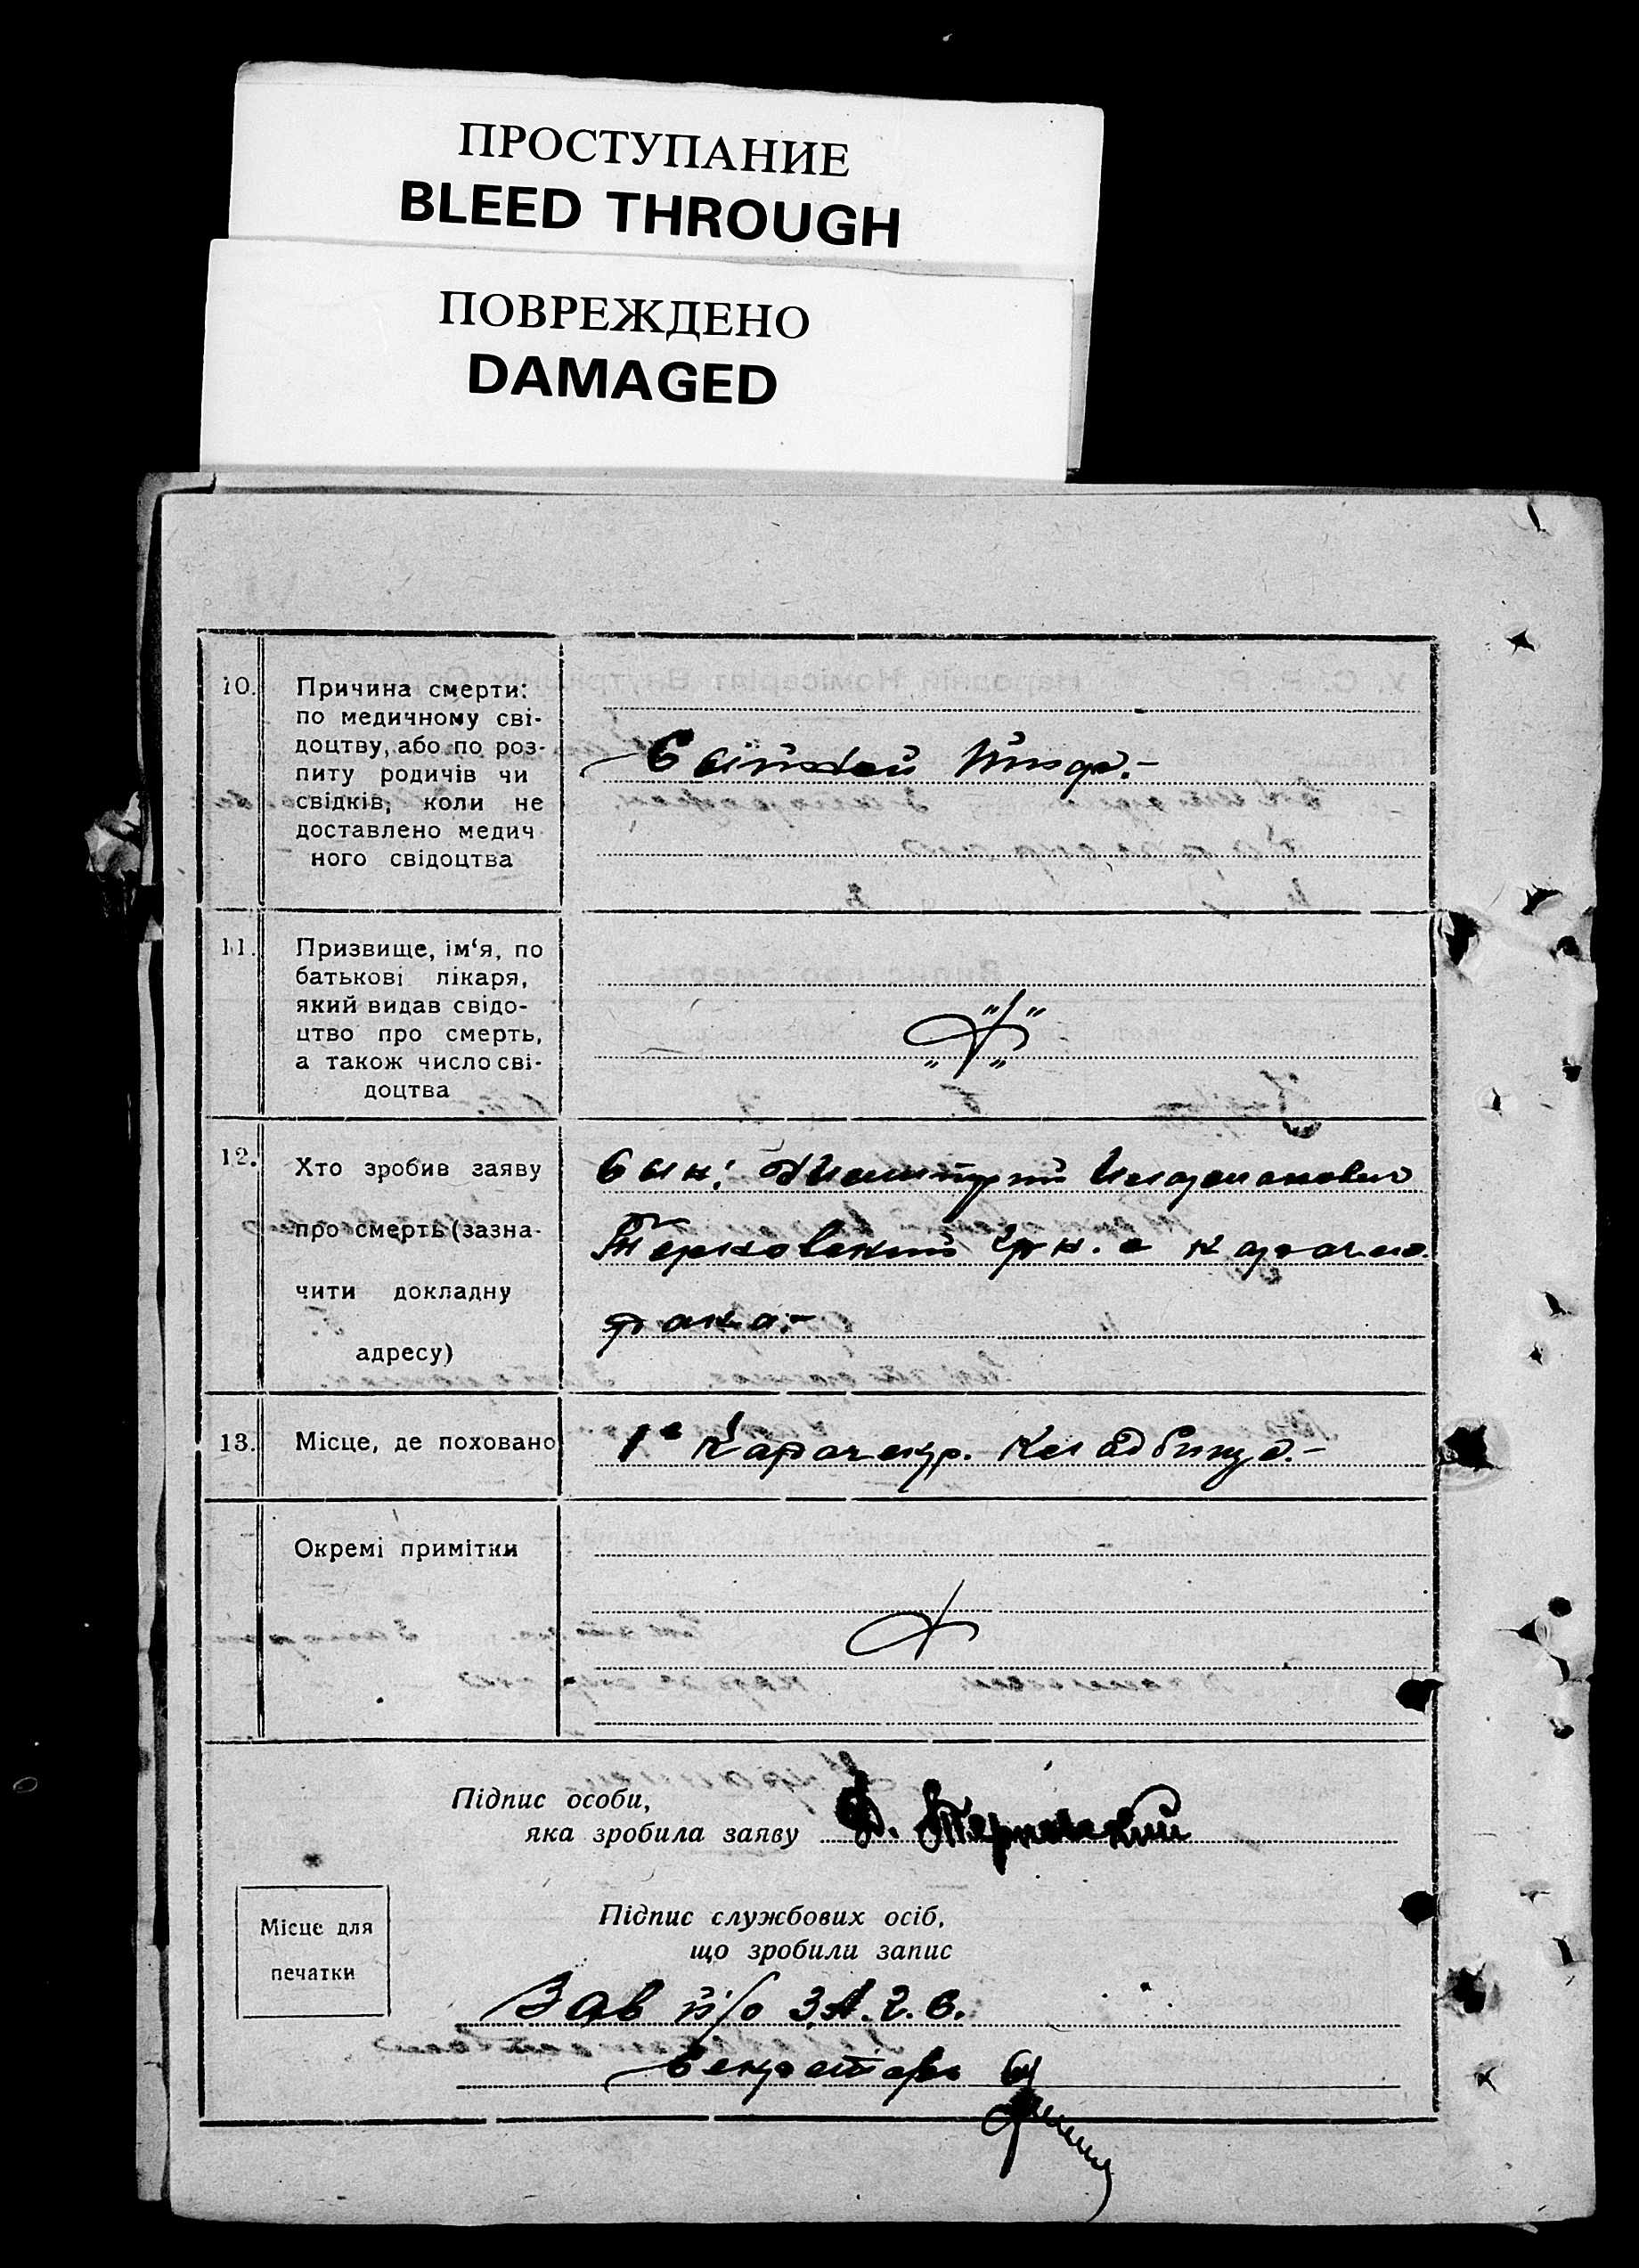 ПРОСТУПАНИЕ
BLEED THROUGH
ПОВРЕЖДЕНО
DAMAGED
10.
Причина смерти:
по медичному сві-
доцтву, або по роз-
питу родичів чи
свідків, коли не
доставлено медич
ного свідоцтва
11.
Призвище, ім‘я, по
батькові лікаря,
який видав свідо-
цтво про смерть,
а також число сві-
доцтва
12.
Хто зробив заяву
про смерть (зазна-
чити докладну
адресу)
Сын: Дмитрий
Терновский
13.
Місце, де поховано
1е Карачекр. Кладбище.-
Окремі примітки
Підпис особи,
яка зробила заяву
Д. Терновский
Місце для
печатки
Підпис службових осіб,
що зробили запис
Зав п/о З.А.Г.С.
Секретарь